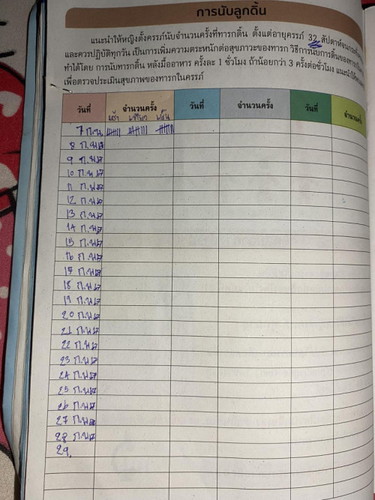 การนับลูกดิ้น
แนะนำให้หญิงตั้งครรภ์นับจำนวนครั้งที่ทารกดิ้น ตั้งแต่อายุครรภ์ 32 สัปดาห์จน
และควรปฏิบัติทุกวัน เป็นการเพิ่มความตระหนักต่อสุขภาพของทารก วิธีการนับการดิ้นของทารก
ทำได้โดย การนับทารกดิ้น หลังมื้ออาหาร ครั้งละ 1 ชั่วโมง ถ้าน้อยกว่า 3 ครั้งต่อชั่วโมง แนะนำ
เพื่อตรวจประเมินสุขภาพของทารกในครรภ์
วันที่ จำนวนครั้ง วันที่ จำนวนครั้ง วันที่ จำนวน
เช้า เที่ยง เย็น
7 ก.ย
8 ก.ย
9 ก.ย
10 ก.ย
11 ก.ย
12 ก.ย
13 ก.ย
14 ก.ย
15 ก.ย
16 ก.ย
17 ก.ย
18 ก.ย
19 ก.ย
20 ก.ย
21 ก.ย
22 ก.ย
23 ก.ย
24 ก.ย
25 ก.ย
26 ก.ย
27 ก.ย
28 ก.ย
29.